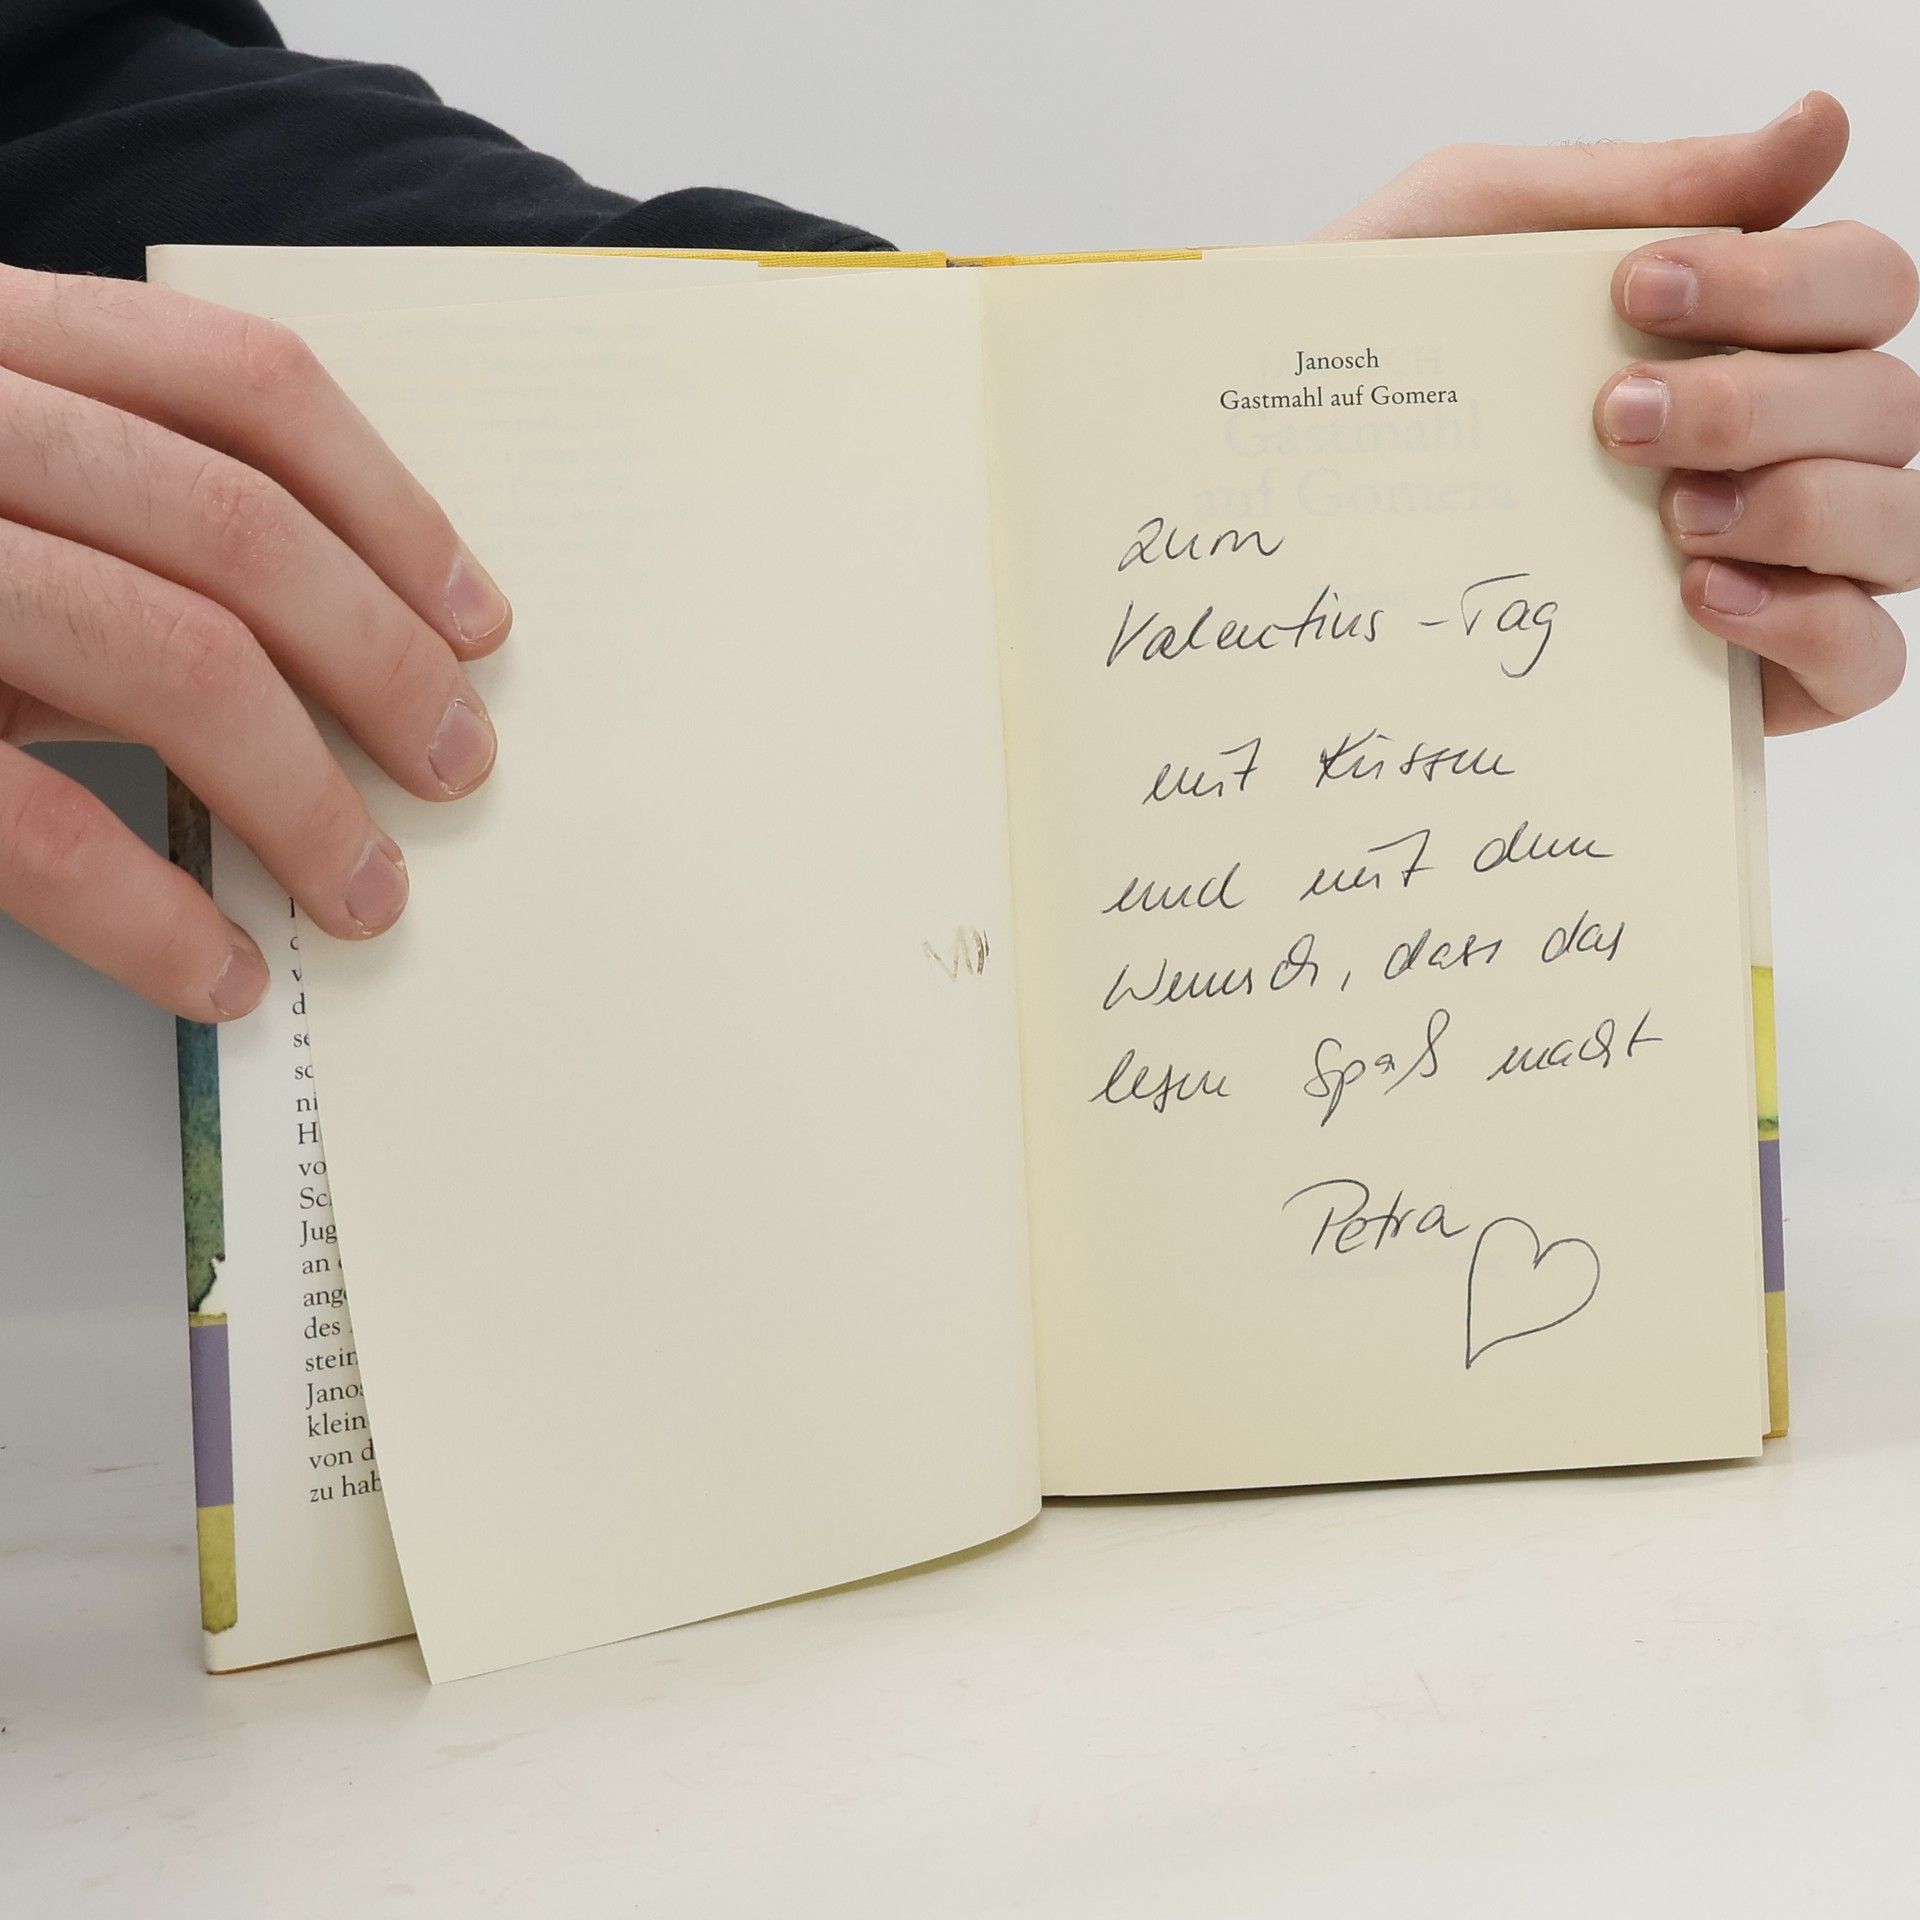 Janosch
Gastmahl auf Gomera
Gastmahl
auf Gomera
zum
Valentins-Tag
mit Küssen
und mit dem
Wunsch, dass das
lesen Spaß macht
Petra
d
se
sc
ni
H
vo
Sc
Jug
an
ang
des
stein
Janos
klein
von d
zu hab